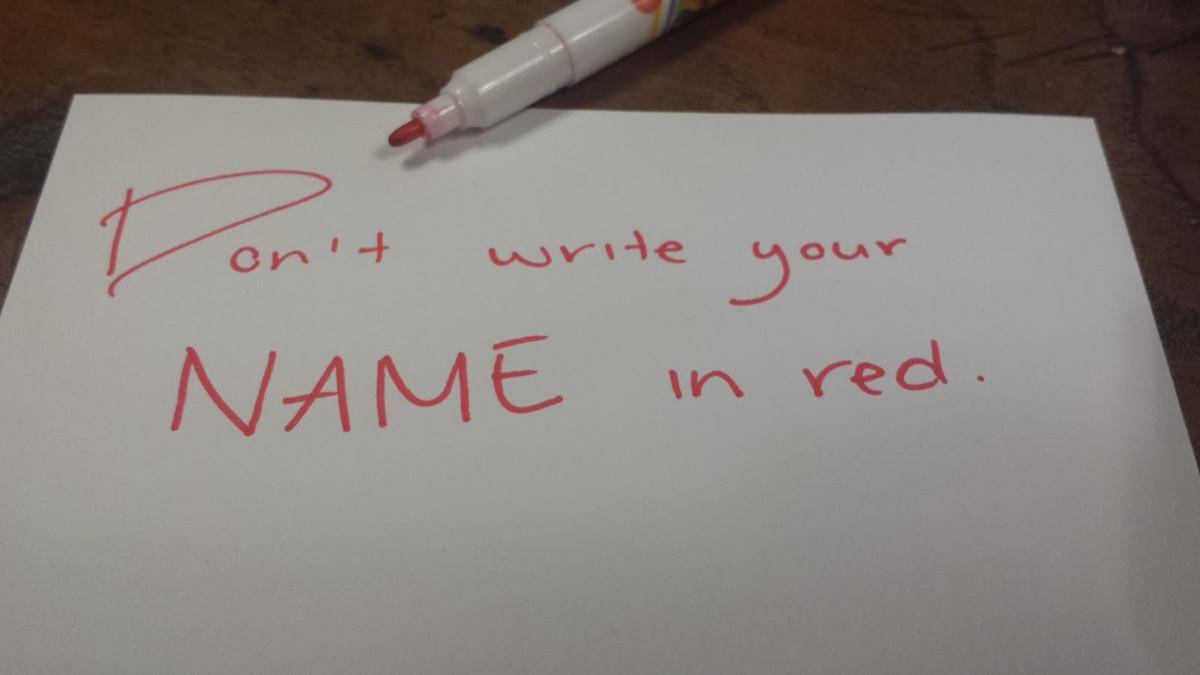 Don't write your
NAME in red.